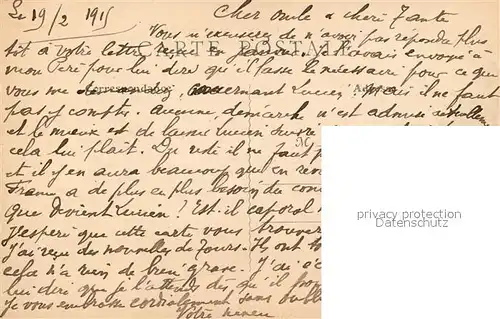 Le 19/2 1915 Cher oncle & chère Tante
Vous m'excuserez de n'avoir pas repondu plus
tôt à votre lettre reçue en janvier. J'avais envoyé à
CARTE POSTALE
mon Père pour lui dire qu'il fasse le nécessaire pour ce que
vous me concernant Lucien. Mais il ne faut
Correspondance
pas y compter. aucune démarche n'est admise
et le mieux est de laisser Lucien suivre
cela lui plait. Du reste il ne faut
et il y en aura beaucoup qui en
France a de plus en plus besoin de
Que devient Lucien ? Est-il caporal
J'espère que cette carte vous trouvera
J'ai reçu des nouvelles de Tours. Ils ont
cela n'a rien de bien grave. J'ai
lui dire que je l'attends dès qu'il
Je vous embrasse cordialement sans
Votre neveu
privacy protection
Datenschutz